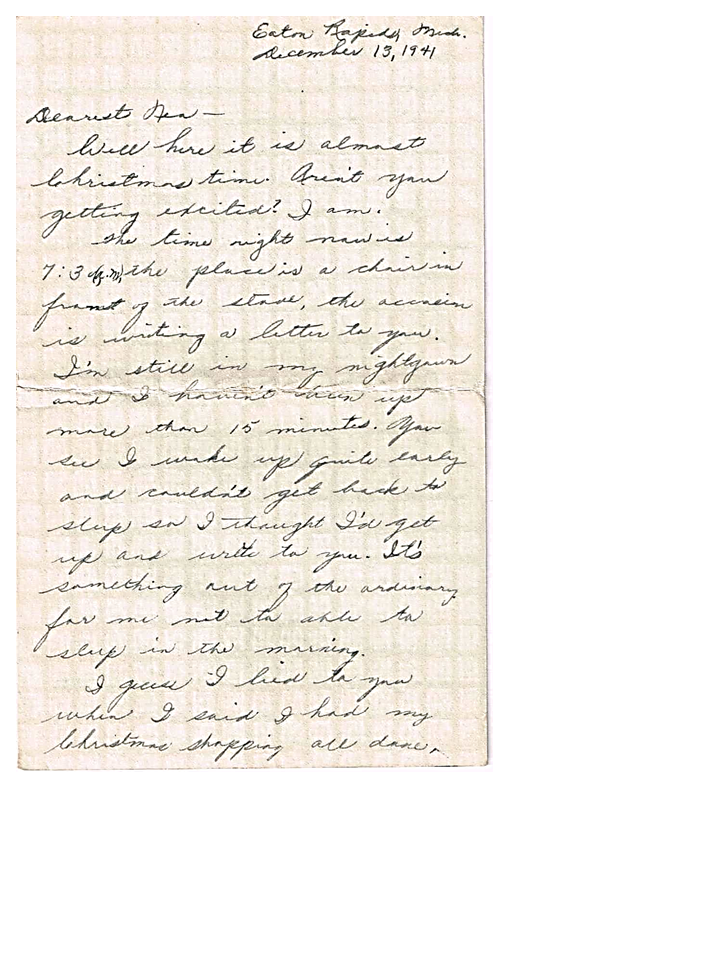 Eaton Rapids, Mich.
December 13, 1941
Dearest Nea —
Well here it is almost
Christmas time. Aren't you
getting excited? I am.
The time right now is
7:30 (a.m.) the place is a chair in
front of the stove, the occasion
is writing a letter to you.
I'm still in my nightgown
and I haven't been up
more than 15 minutes. You
see I woke up quite early
and couldn't get back to
sleep so I thought I'd get
up and write to you. It's
something out of the ordinary
for me not to able to
sleep in the morning.
I guess I lied to you
when I said I had my
Christmas shopping all done,